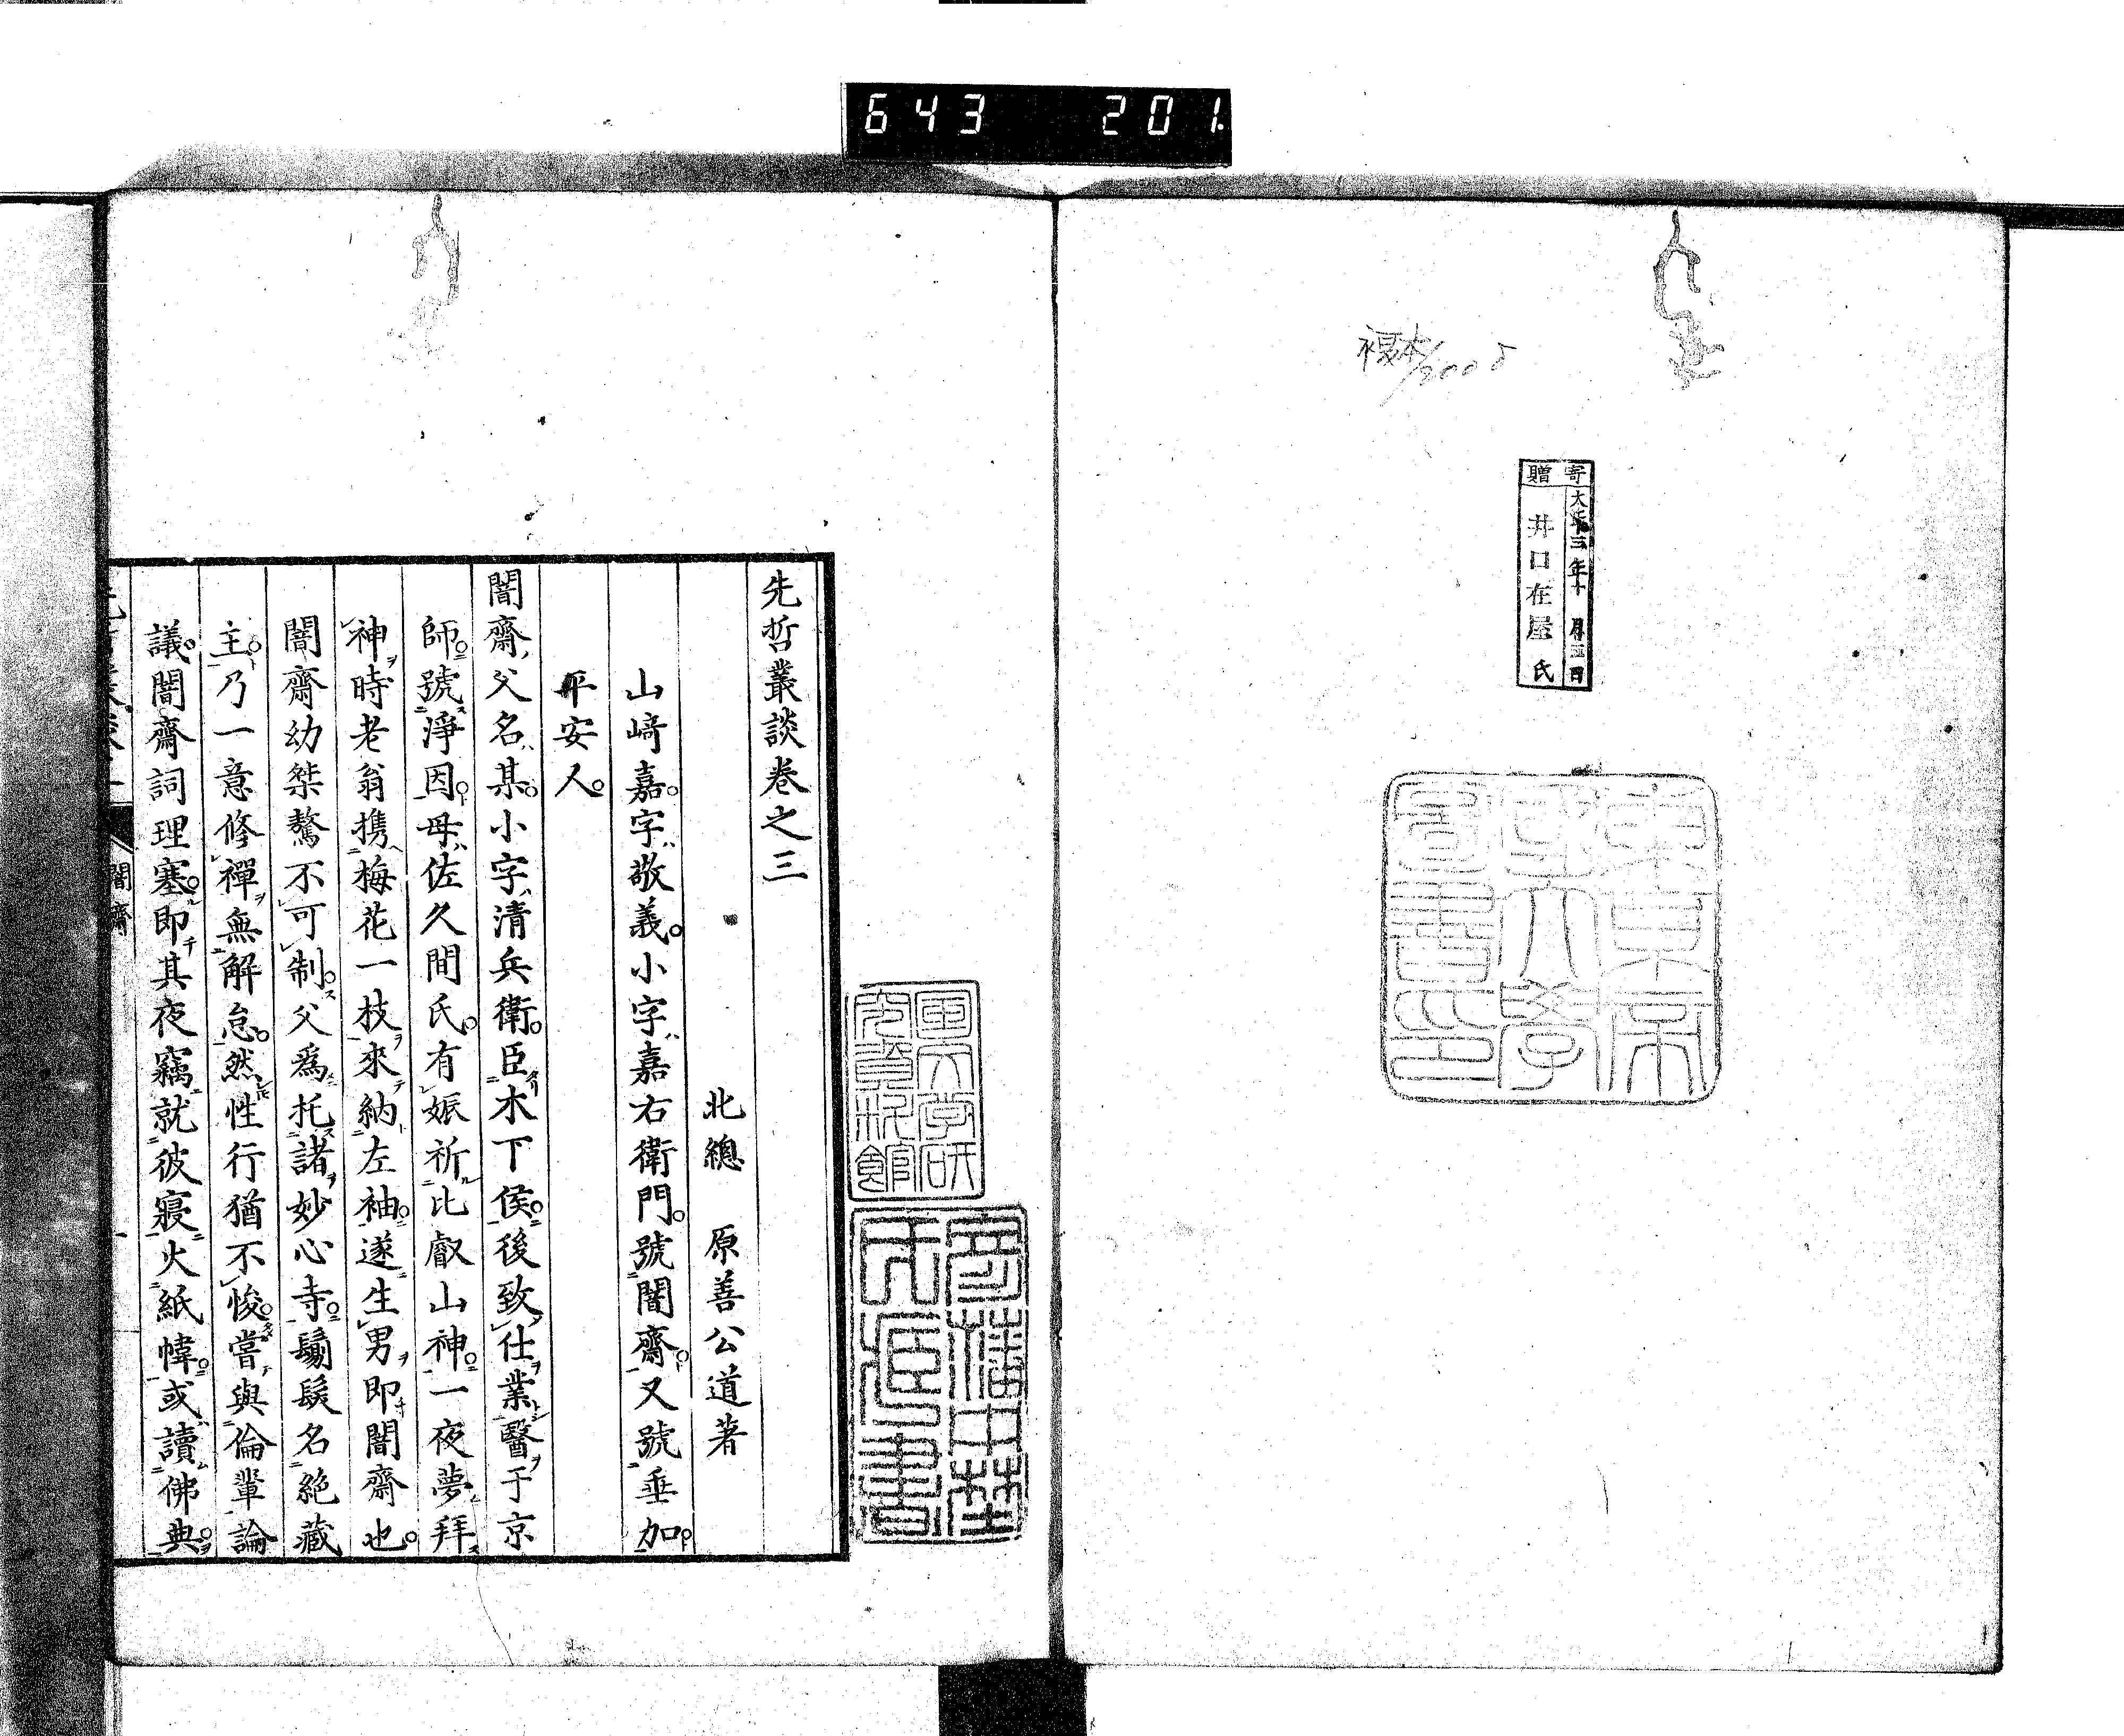 643 201.
複本/2005
寄贈
大正三年十月三日
井口在屋氏
東京帝
國大學
圖書印
先哲叢談卷之三
北總 原善公道著
山﨑嘉。字敬義。小字嘉右衛門。號闇齋。又號垂加。
平安人。
闇齋父名某。小字清兵衛。臣木下侯。後致仕業醫于京
師。號淨因。母佐久間氏。有娠祈比叡山神。一夜夢拜
神時老翁携梅花一枝來納左袖。遂生男即闇齋也。
闇齋幼桀驁不可制。父爲托諸妙心寺。鬀髮名絕藏
主。乃一意修禪無解怠。然性行猶不悛。嘗與倫輩論
議。闇齋詞理塞。即其夜竊就彼寢火紙幃。或讀佛典。
闇齋
一